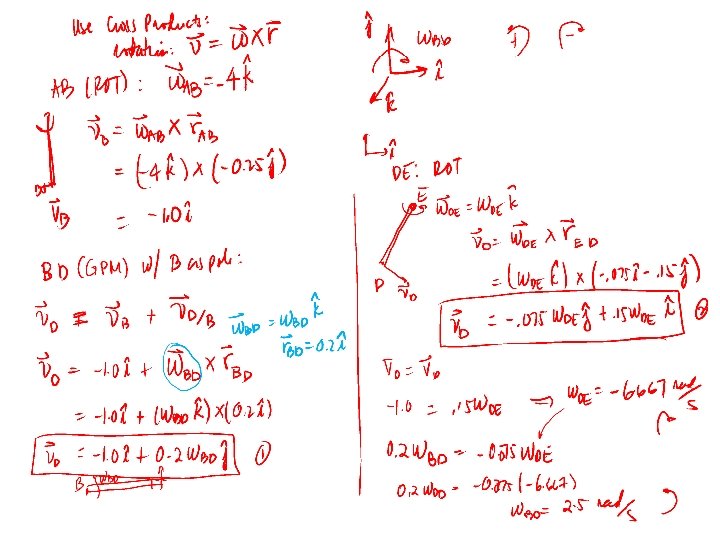 Use Cross Products:
rotation: v⃗ = ω⃗ x r⃗
AB (ROT): ω⃗AB = -4 k̂
v⃗B = ω⃗AB x r⃗AB
= (-4 k̂) x (-0.25 ĵ)
v⃗B = -1.0 î
BD (GPM) w/ B as pole:
v⃗D = v⃗B + v⃗D/B
ω⃗BD = ωBD k̂
r⃗BD = 0.2 î
v⃗D = -1.0 î + ω⃗BD x r⃗BD
= -1.0 î + (ωBD k̂) x (0.2 î)
v⃗D = -1.0 î + 0.2 ωBD ĵ ①
B ωBD
ĵ ωBD
î
k̂
+ -
î
DE: ROT
E ω⃗DE = ωDE k̂
v⃗D = ω⃗DE x r⃗ED
D v⃗D
= (ωDE k̂) x (-.075 î - .15 ĵ)
v⃗D = -.075 ωDE ĵ + .15 ωDE î ②
v⃗D = v⃗D
-1.0 = .15 ωDE ⇒ ωDE = -6.667 rad/s
0.2 ωBD = -0.075 ωDE
0.2 ωBD = -0.075 (-6.667)
ωBD = 2.5 rad/s